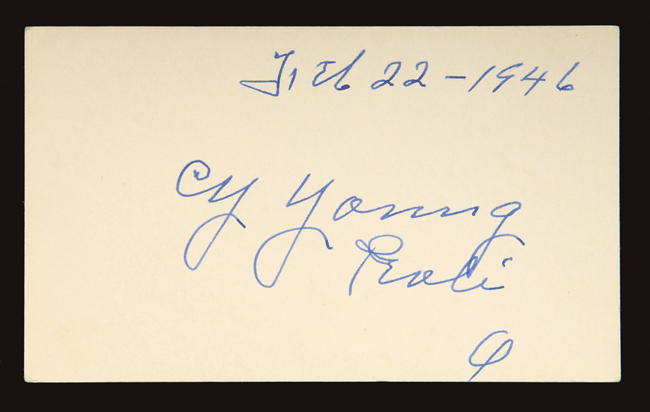 Feb 22-1946
Cy Young
Peoli
O